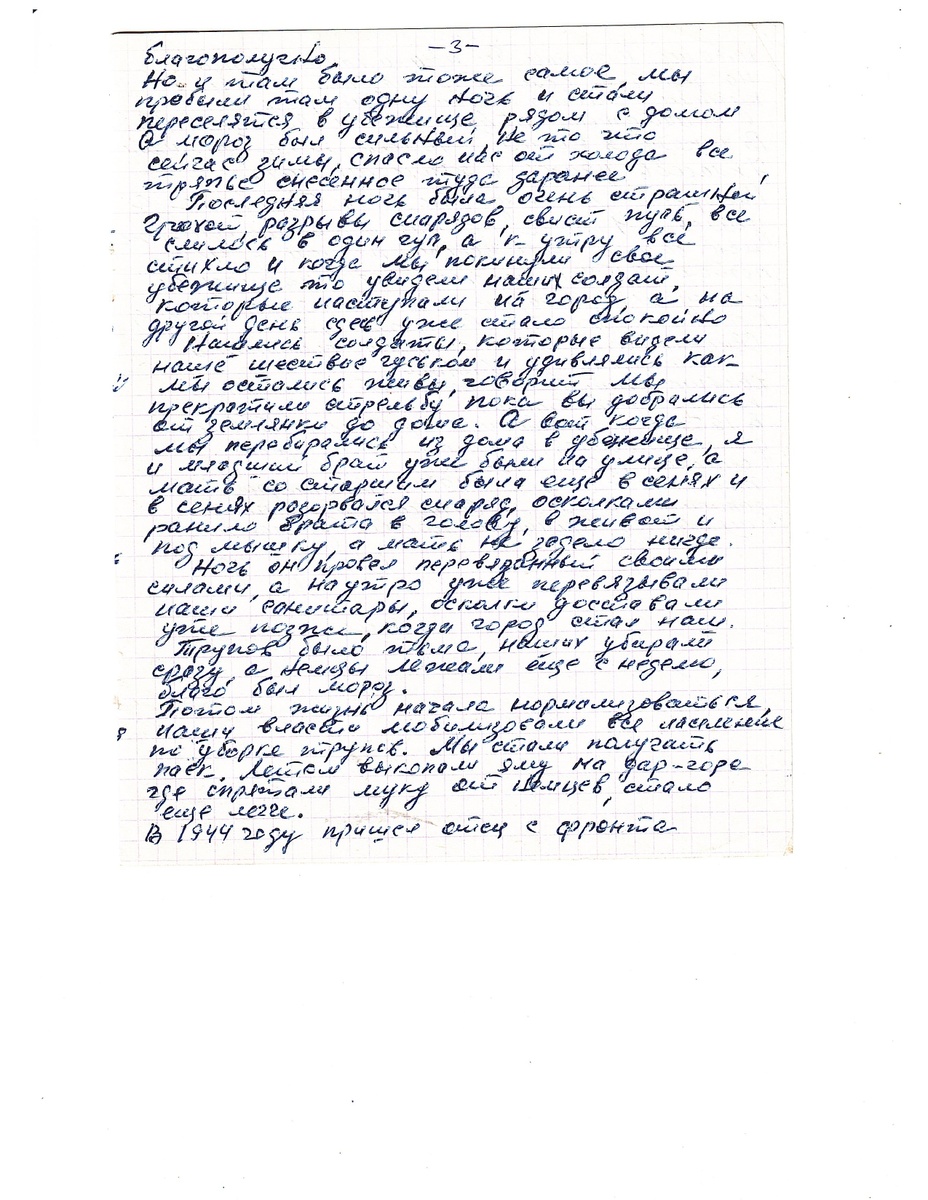 -3-
благополучно.
Но и там было тоже самое, мы
пробыли там одну ночь и стали
переселятся в убежище рядом с домом
А мороз был сильный, не то что
сейчас зимы, спасло нас от холода все
тряпье снесенное туда заранее
Последняя ночь была очень страшной,
Грохот, разрывы снарядов, свист пуль, все
слилось в один гул, а к утру всё
стихло и когда мы покинули свое
убежище то увидели наших солдат,
которые наступали на город, а на
другой день здесь уже стало спокойно
Нашлись солдаты, которые видели
наше шествие гуськом и удивлялись как
мы остались живы, говорит мы
прекратили стрельбу, пока вы добрались
от землянки до дома. А вот когда
мы перебирались из дома в убежище, я
и младший брат уже были на улице, а
мать со старшим была еще в сенях и
в сенях разорвался снаряд, осколками
ранило брата в голову, в живот и
под мышку, а мать не задело нигде.
Ночь он провел перевязанный своими
силами, а на утро уже перевязывали
наши санитары, осколки доставали
уже позже, когда город стал наш.
Трупов было тьма, наших убирали
сразу, а немцы лежали еще с неделю,
благо был мороз.
Потом жизнь начала нормализоваться,
наши власти мобилизовали все население
по уборке трупов. Мы стали получать
паек. Летом выкопали яму на дар-горе
где спрятали муку от немцев, стало
еще легче.
В 1944 году пришел отец с фронта